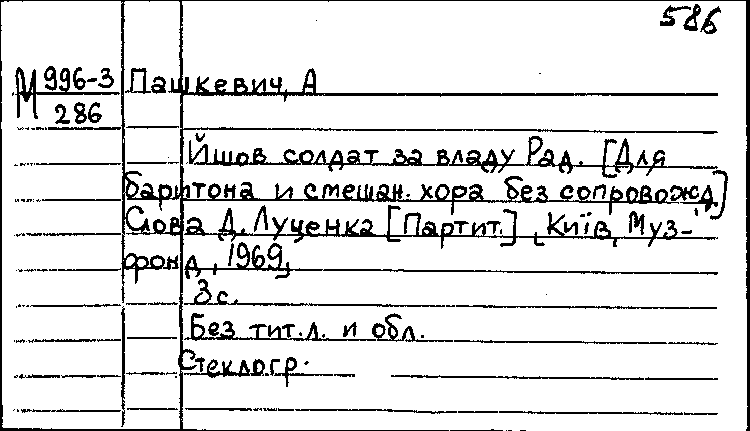 586
М 996-3 Пашкевич, А
286
Йшов солдат за владу Рад. [Для
баритона и смешан. хора без сопровожд.]
Слова Д. Луценка [Партит.] [Київ, Муз-
фонд, 1969]
3 с.
Без тит. л. и обл.
Стеклогр.